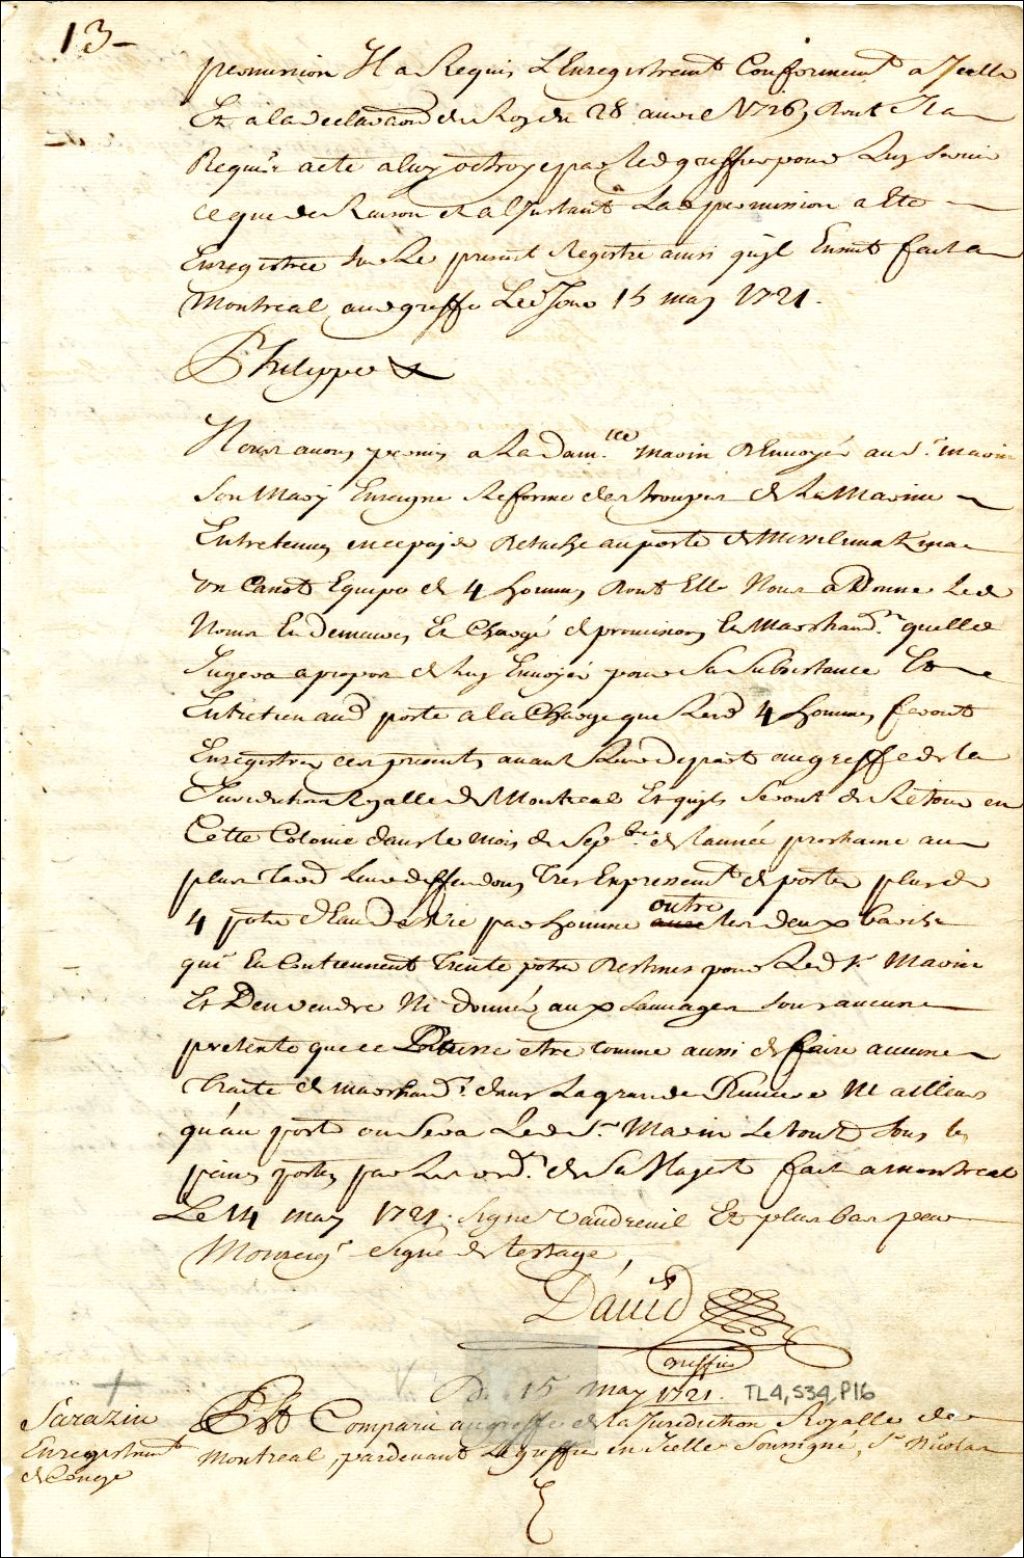 13-
permission Il a Requis L'Enregistremt Conformemt a Icelle
Et a la declaraon du Roy du 28 avril 1726, Dont Il a
Requis acte a luy octroyé par led greffier pour Luy servir
ce que de Raison et a l'Instant Lad permission a Eté
Enregistrée sur Le present Registre ainsi qu'jl Ensuit fait a
Montreal aud greffe Led Jour 15 may 1721.
Philippes
Nous avons permis a La Dam.lle marin d'Envoyér au Sr. marin
son Mary Enseigne Reformé des trouppes de La Marine
Entretenues en ce pajs Detaché au poste de Missilimakina
un Canot Equipé de 4 hommes Dont Elle Nous a Donné Led
Noms Et Demeures, Et Chargé de provisions Et Marchands. quelle
Jugera apropos de luy Envoyér pour Sa Subsistance Et
Entretien aud poste a la Charge que Lesd 4 hommes feront
Enregistrer ces presentes avant Leur depart au greffe de la
Jurisdiction Royalle de Montreal Et qujls Seront de Retour en
Cette Colonie dans le mois de Sepbre. de l'année prochaine au
plus tard Leur deffendons Tres Expressemt de porter plus de
4 pots d'Eau De Vie par homme outre les deux barils
qui En Contiennent trente pots Destinés pour Led Sr. Marin
Et D'en vendre Ni donnér aux Sauvages sous aucun
pretexte que ce Puisse etre comme aussi de faire aucune
Traite de marchands. dans La grande Riviere Ni ailleurs
qu'au poste ou Sera Led Sr. Marin Le tout Sous les
peines portées par Les ordes. de Sa Majesté fait a montreal
Le 14 may 1721. Signé Vaudreuil Et plus bas par
Monseigr Signé de Lestage,
David
Greffier
Du 15 may 1721. TL4,S34,P16
Sarazin
Enregistremt
de Congé
Est Comparu au greffe de la Jurisdiction Royalle de
Montreal, pardevant Le greffier en Icelle Soussigné, Sr Nicolas